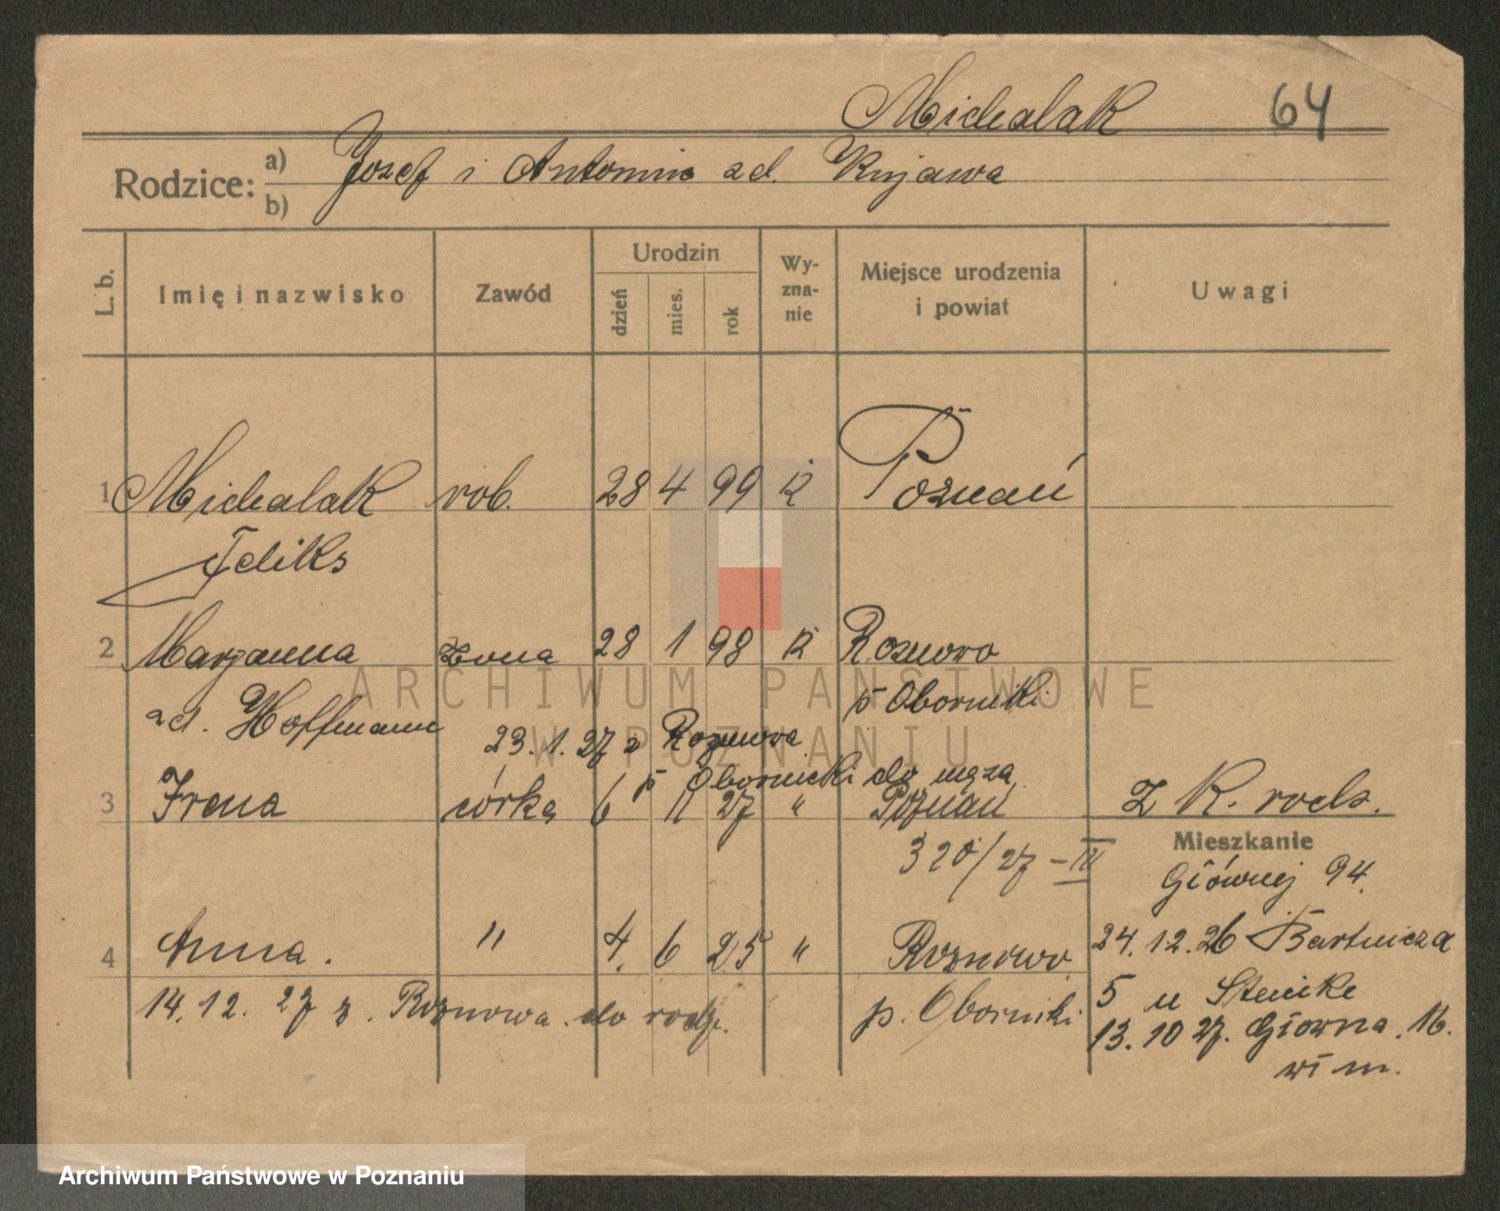 Michalak 64
Rodzice: a) Jozef i Antonina zd. Kujawa
b)
L. b. Imię i nazwisko Zawód Urodzin dzień mies. rok Wy-zna-nie Miejsce urodzenia i powiat Uwagi
1 Michalak rob. 28 4 99 K Poznań
Feliks
2 Maryanna żona 28 1 98 K Roznowo
zd. Hoffmann p Oborniki
23.1.27 z Roznowa
p Obornicki do męża
3 Irena córka 6 11 27 " Poznań z K. rodz.
320/27-III Mieszkanie
Główna 94.
4 Anna. " 4. 6 25 " Roznowo 24.12.26 Bartnicza
14.12.27 z. Roznowa do rodz. p. Oborniki 5 u
13.10 27. Główna. 16.
wł m.
ARCHIWUM PAŃSTWOWE
W POZNANIU
Archiwum Państwowe w Poznaniu